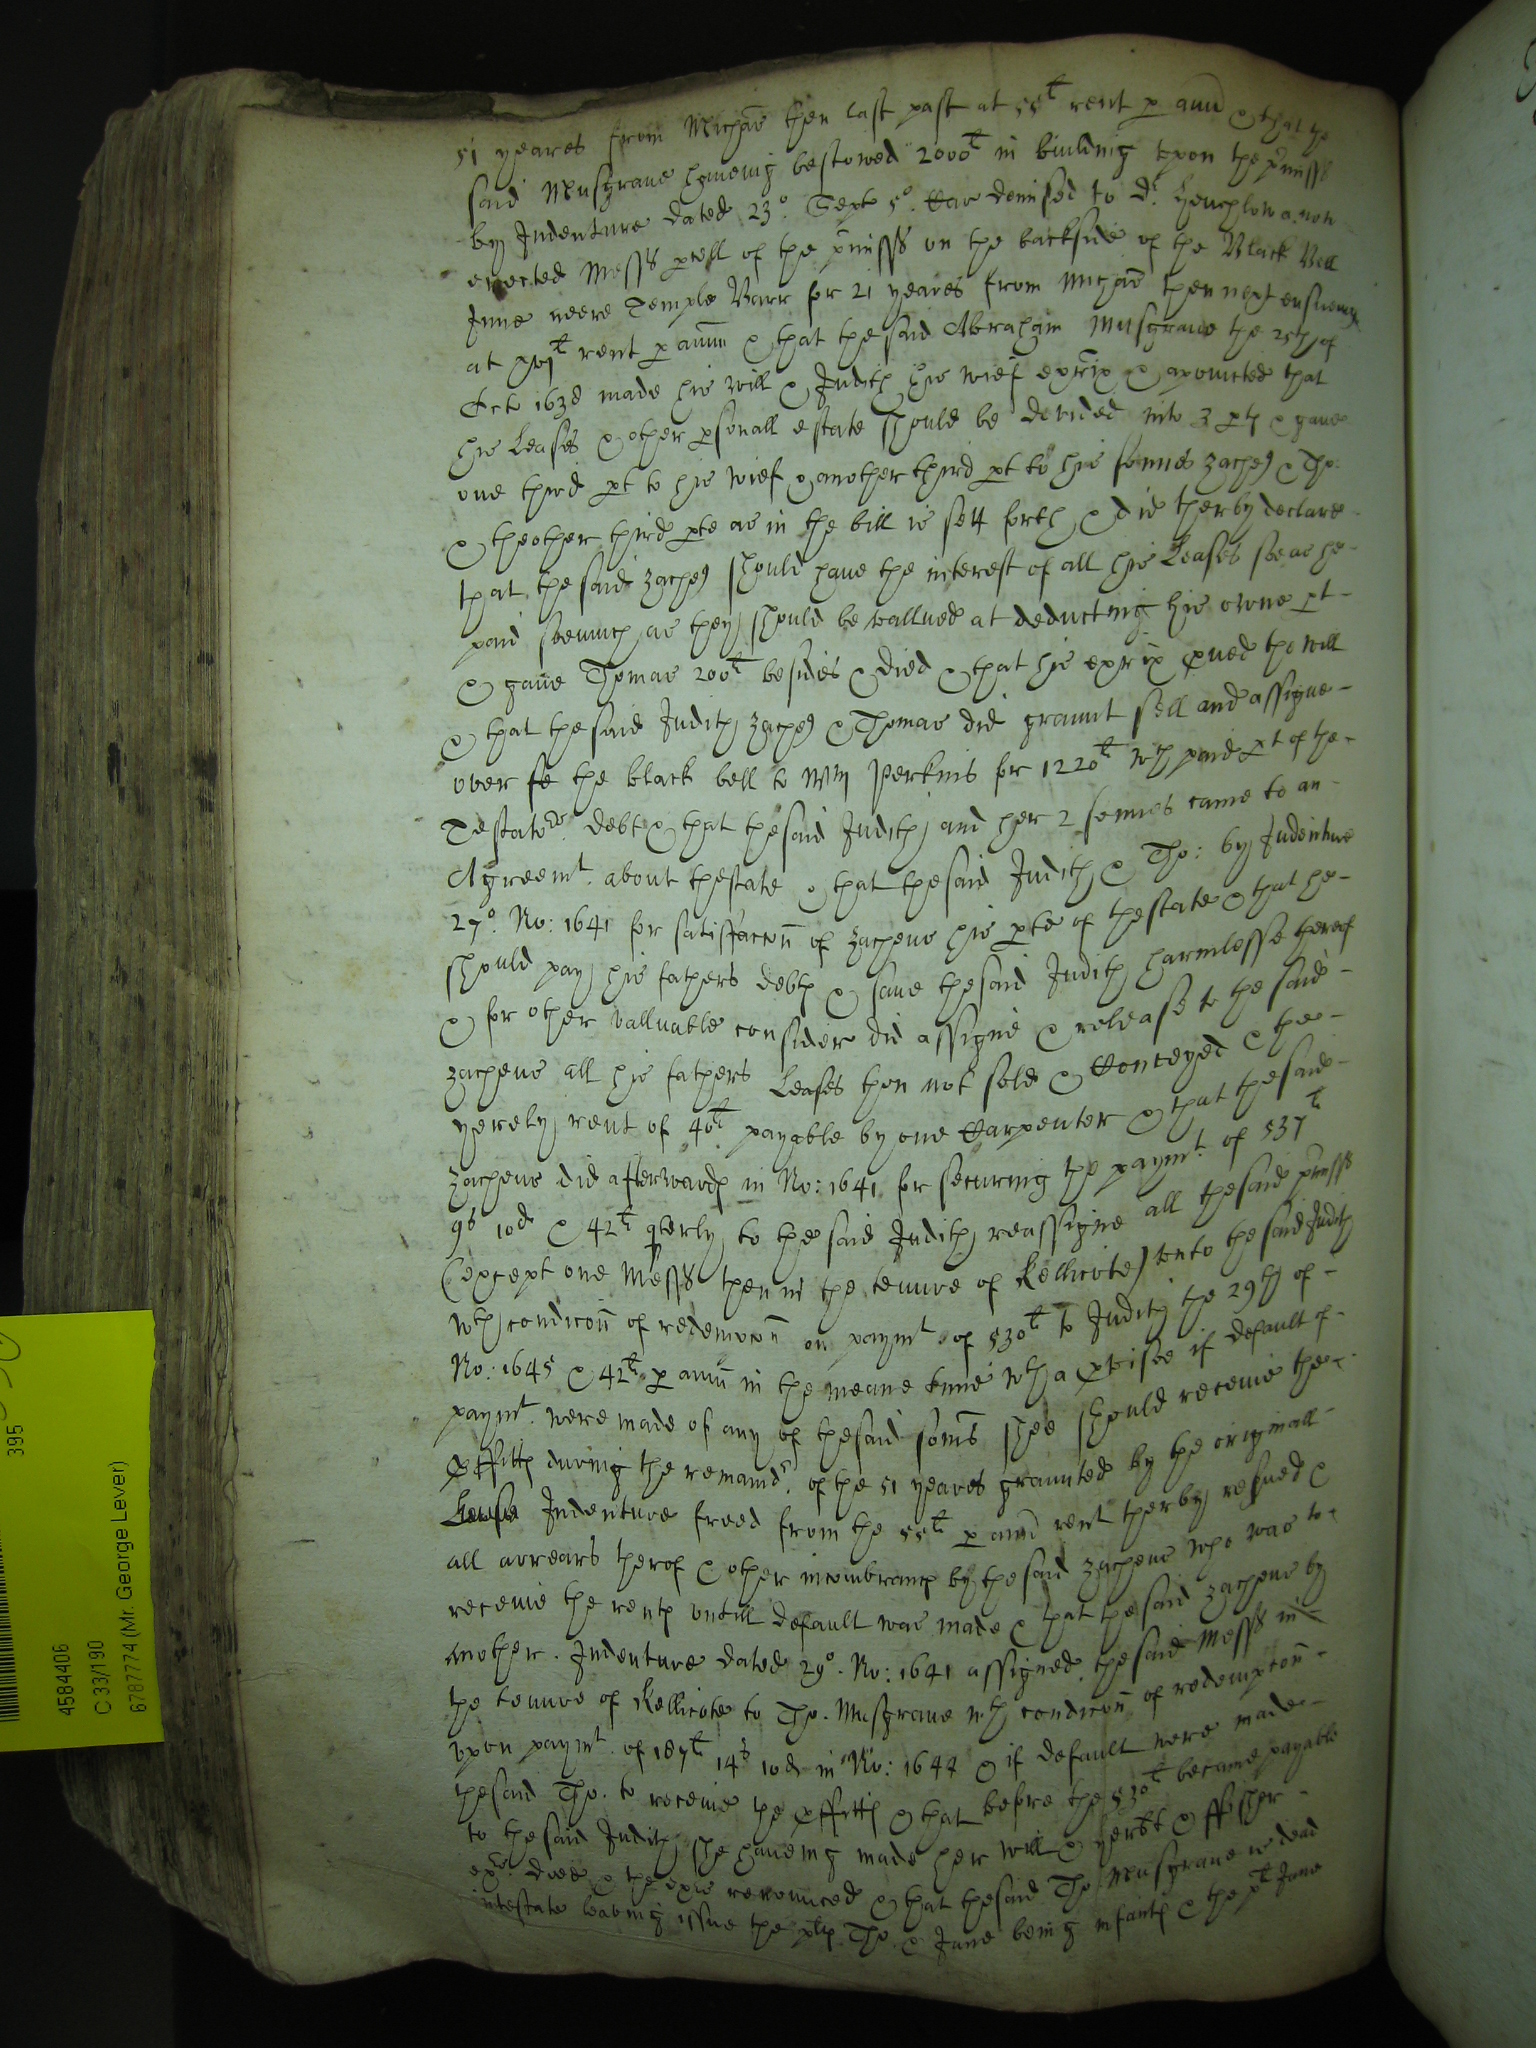 51 yeares from Michãs then last past at 55li rent p annũ & that the
said Musgrave haueing bestowed 2000li in building vpon the p̃miss̃
by Indenture dated 23o. Sept 5o. Car demised to Dr. a new
erected Mess̃ pcell of the p̃miss̃ on the backside of the Black Bell
Inne neere Temple Barr for 21 yeares from Michãs then next ensueing
at xvjli rent p annũ & that the said Abraham Musgraue the 25th of
Octo 1638 made his will & Judith his wief exrix & appointed that
his Leases & other psonall estate should be devided into 3 pts & gaue
one third pt to his wief & another third pt to his sonnes Zacheus & Tho:
& theother third pte as in the bill is sett forth & did therby declare
that the said Zacheus should haue the interest of all his Leases soe as he
paid soemuch as they should be vallued at deducting his owne pt
& gaue Thomas 200li besides & died & that his exrix pued the will
& that the said Judith Zacheus & Thomas did graunt sell and assigne
over the black bell to Wm Perkins for 1220li wch paid pt of the
Testators debts & that the said Judith and her 2 sonnes came to an
Agreemt. about thestate & that thesaid Judith & Tho: by Indenture
27o. No: 1641 for satisfaccon̄ of Zacheus his pte of thestate & that he
should pay his fathers debts & saue thesaid Judith harmlesse thereof
& for other valluable consider did assigne & release to the said
Zacheus all his fathers Leases then not sold & Conveyed & the
yerely rent of 40li payable by one Carpenter & that thesaid
Zacheus did afterwards in No: 1641 for securing the paymt. of 537li
9s 10d & 42li qterly to the said Judith reassigne all thesaid p̃miss̃
(except one Mess̃ then in the tenure of Kellicote) vnto the said Judith
wth condicon̄ of redempcon̄ on paymt. of 530li to Judith the 29th of
No: 1645 & 42li p annũ in the meane time wth a pviso if default of
paymt. were made of any of thesaid som̃s shee should receiue the
pffitts during the remaindr. of the 51 yeares graunted by the originall
Lease Indenture freed from the 55li p annũ rent therby resued &
all arrears therof & other incombrancs by thesaid Zacheus who was to
receiue the rents vntill default was made & that thesaid Zacheus by
another Indenture dated 29o. No: 1641 assigned thesaid Mess̃ in
the tenure of Kellicote to Tho. Musgraue wth condicon̄ of redempcon̄
vpon paymt. of 187li 14s 10d in No: 1644 & if default were made
thesaid Tho. to receiue the pffitts & that before the 530li became payable
to thesaid Judith she haueing made her will & & ffisher
exrs. died & the exrs renounced & that thesaid Tho Musgraue is dead
intestate leaving issue the plts Tho & Jane being infants & the plt Jane
4584406
C 33/190
6787774 (Mr. George Lever)
395